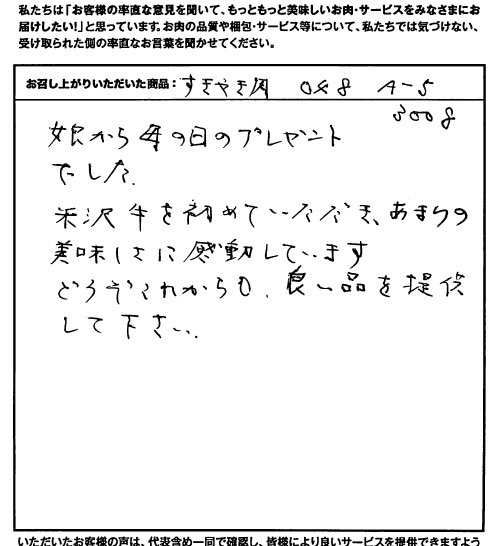 私たちは「お客様の率直な意見を聞いて、もっともっと美味しいお肉・サービスをみなさまにお
届けしたい!」と思っています。お肉の品質や梱包・サービス等について、私たちでは気づけない、
受け取られた側の率直なお言葉を聞かせてください。
お召し上がりいただいた商品：すきやき用 048 A-5
300g
娘から母の日のプレゼント
でした。
米沢牛を初めていただき、あまりの
美味しさに感動しています
どうぞこれからも、良い品を提供
して下さい。
いただいたお客様の声は、代表含め一同で確認し、皆様により良いサービスを提供できますよう